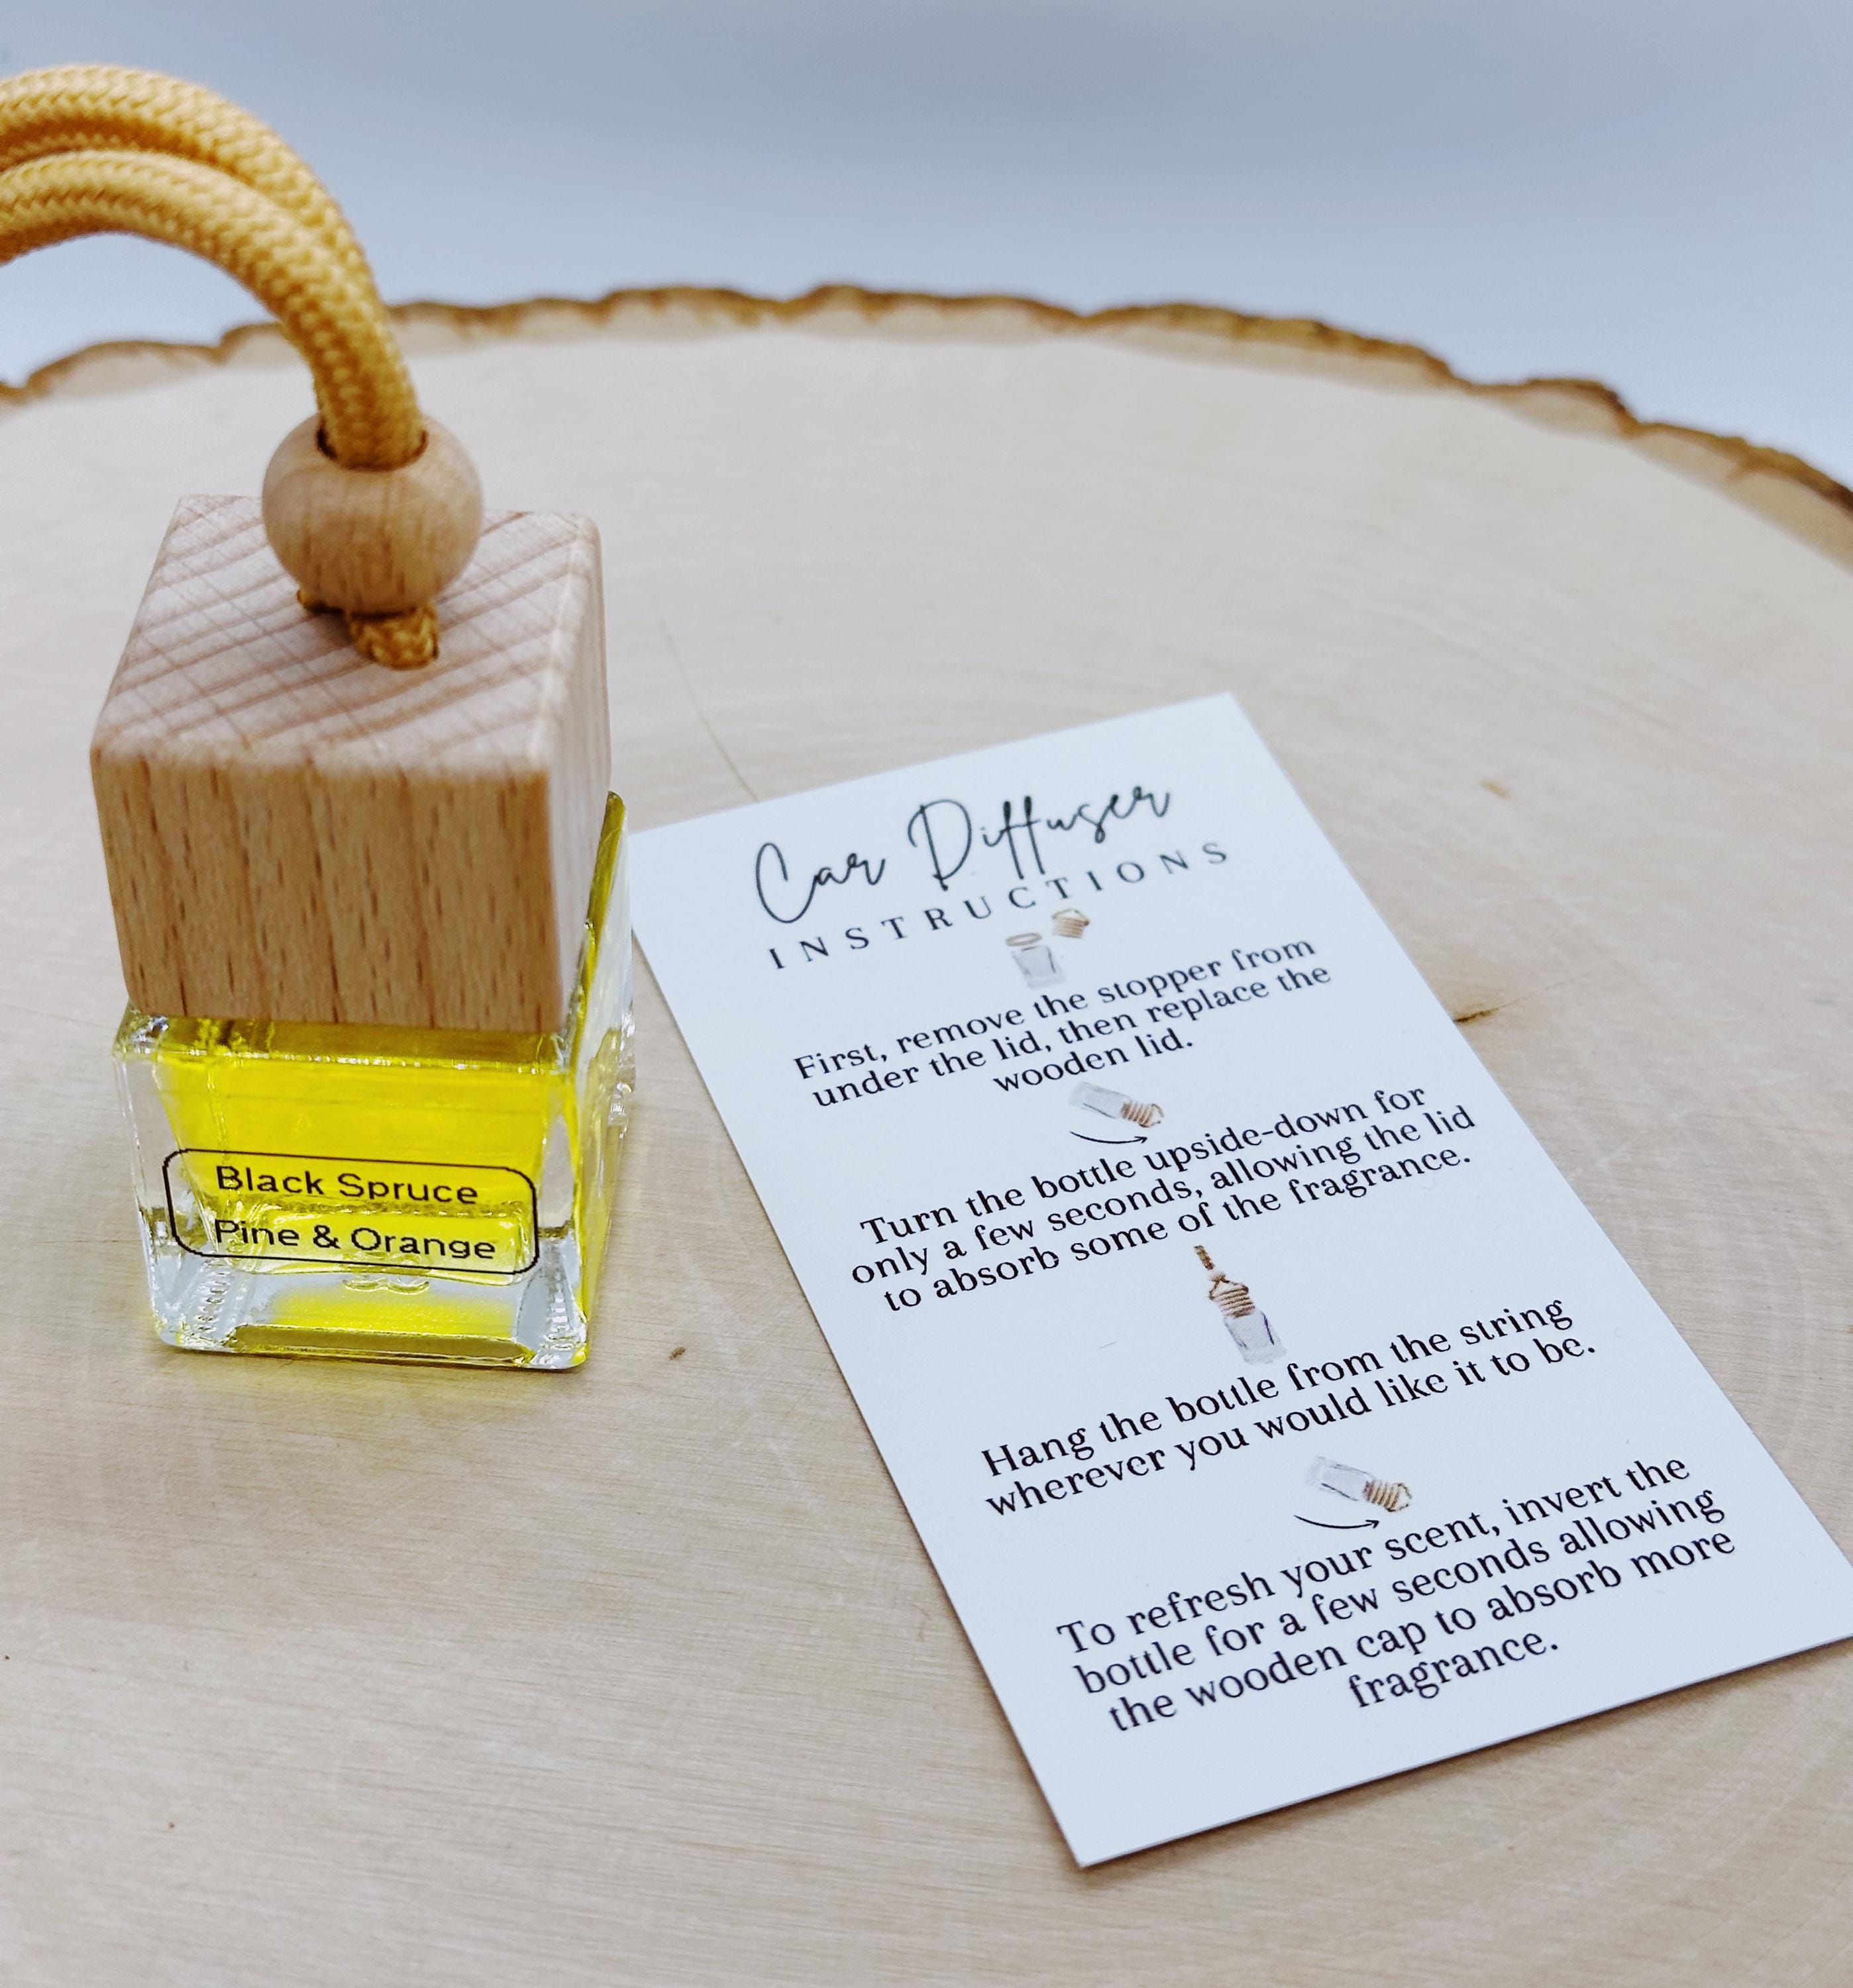 Black Spruce
Pine & Orange
Car Diffuser
INSTRUCTIONS
First, remove the stopper from
under the lid, then replace the
wooden lid.
Turn the bottle upside-down for
only a few seconds, allowing the lid
to absorb some of the fragrance.
Hang the bottle from the string
wherever you would like it to be.
To refresh your scent, invert the
bottle for a few seconds allowing
the wooden cap to absorb more
fragrance.